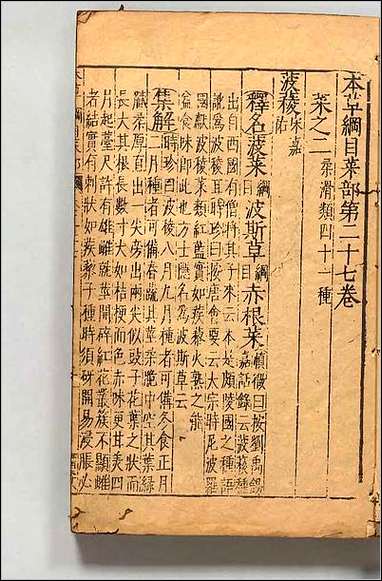 本草綱目菜部第二十七卷
菜之二 柔滑類四十一種
菠薐 宋嘉祐
釋名 菠菜 綱目 波斯草 綱目 赤根菜 慎微曰按劉禹錫
嘉話錄云菠薐種
出自西國有僧將其子來云本是頗陵國之種語
訛為波稜耳時珍曰按唐會要云太宗時尼波羅
國獻波稜菜類紅藍實如蒺藜火熟之能
益食味即此也方士隱名為波斯草云
集解 時珍曰波稜八月九月種者可備冬食正月
二月種者可備春蔬其莖柔脆中空其葉綠
膩柔厚直出一尖旁出兩尖似鼓子花葉之狀而
長大其根長數寸大如桔梗而色赤味更甘美四
月起薹尺許有雄雌就莖開碎紅花叢簇不顯雌
者結實有刺狀如蒺藜子種時須研開易浸脹必